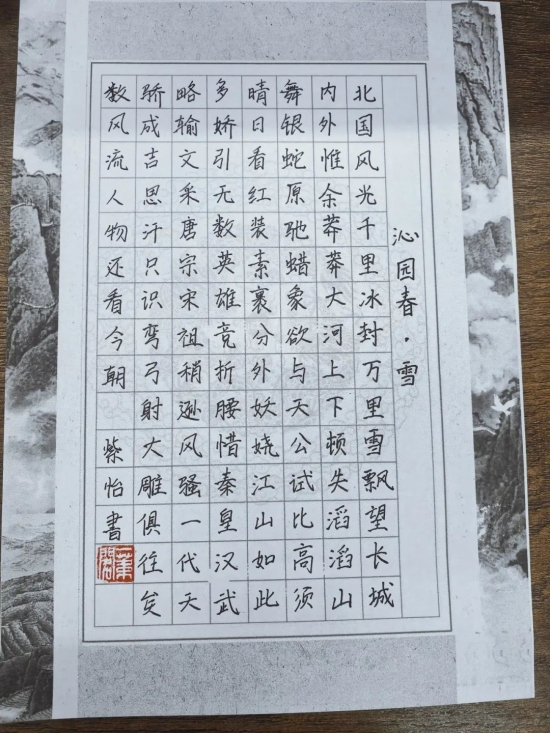 沁园春·雪
北国风光千里冰封万里雪飘望长城
内外惟余莽莽大河上下顿失滔滔山
舞银蛇原驰蜡象欲与天公试比高须
晴日看红装素裹分外妖娆江山如此
多娇引无数英雄竞折腰惜秦皇汉武
略输文采唐宗宋祖稍逊风骚一代天
骄成吉思汗只识弯弓射大雕俱往矣
数风流人物还看今朝 紫怡書